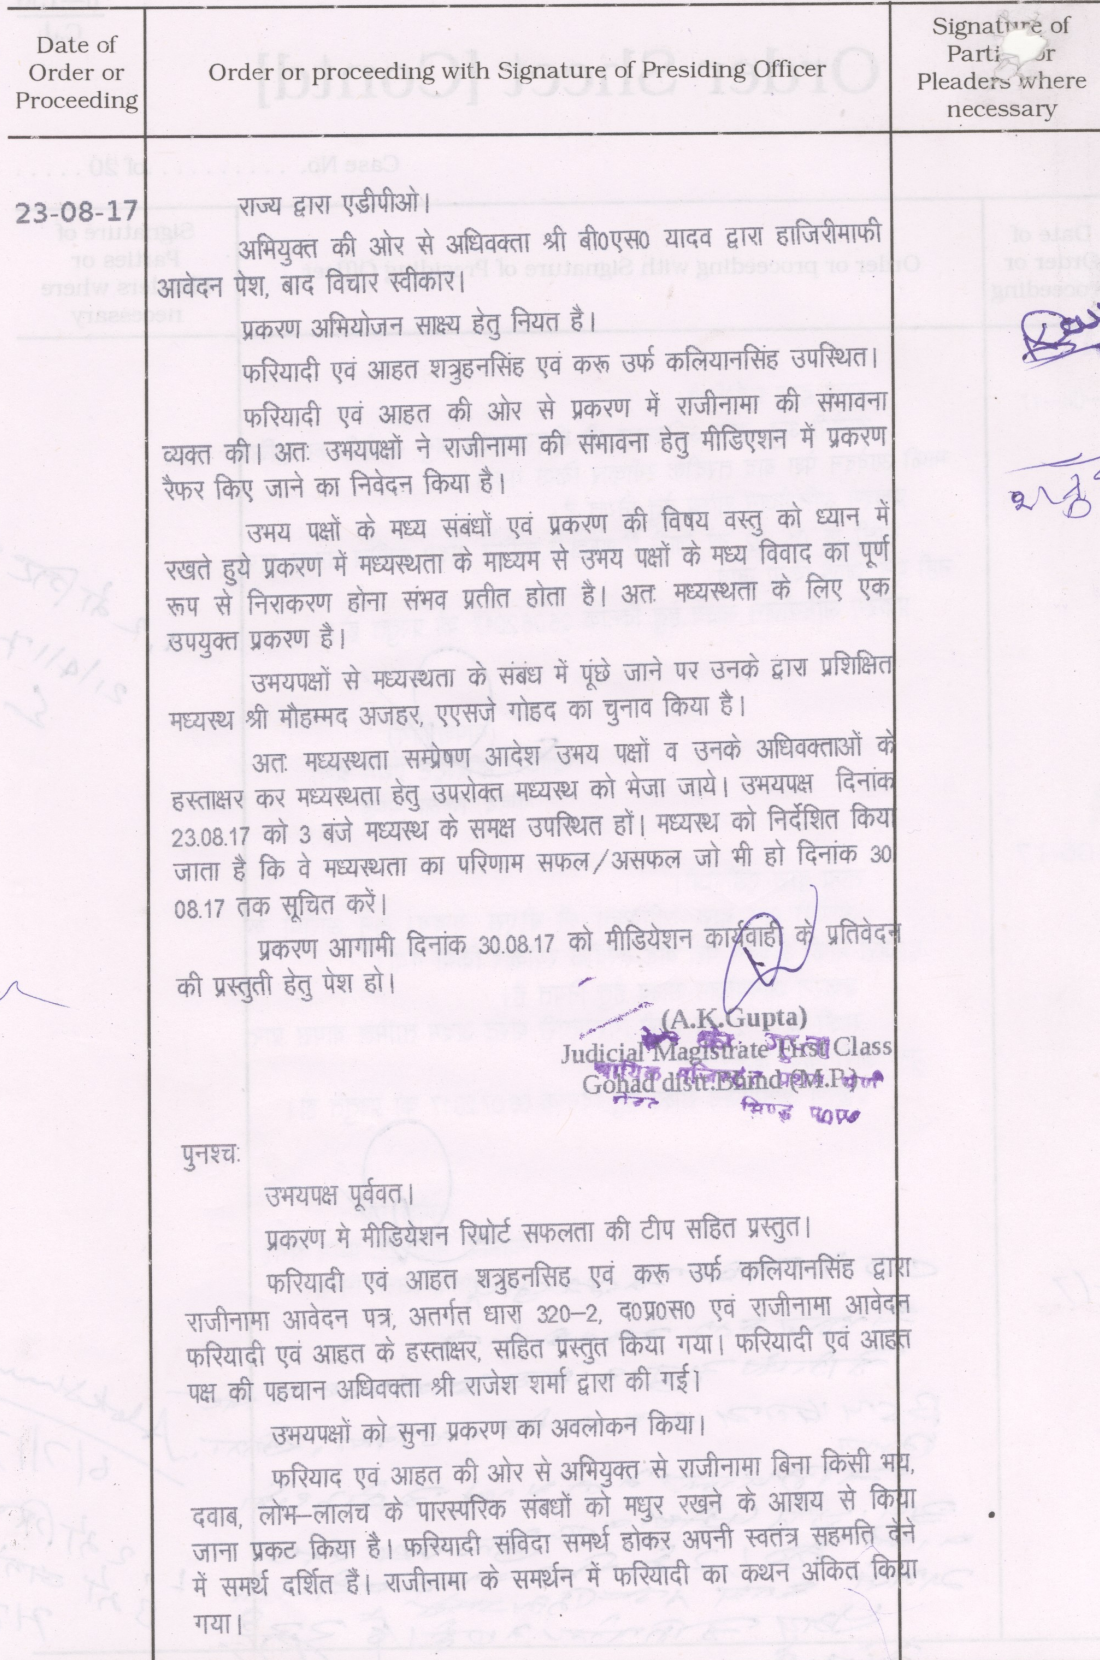 Date of
Order or
Proceeding
Order or proceeding with Signature of Presiding Officer
Signature of
Parti or
Pleaders where
necessary
23-08-17
राज्य द्वारा एडीपीओ।
अभियुक्त की ओर से अधिवक्ता श्री बी0एस0 यादव द्वारा हाजिरीमाफी
आवेदन पेश, बाद विचार स्वीकार।
प्रकरण अभियोजन साक्ष्य हेतु नियत है।
फरियादी एवं आहत शत्रुहनसिंह एवं करू उर्फ कलियानसिंह उपस्थित।
फरियादी एवं आहत की ओर से प्रकरण में राजीनामा की संभावना
व्यक्त की। अतः उभयपक्षों ने राजीनामा की संभावना हेतु मीडिएशन में प्रकरण
रैफर किए जाने का निवेदन किया है।
उभय पक्षों के मध्य संबंधों एवं प्रकरण की विषय वस्तु को ध्यान में
रखते हुये प्रकरण में मध्यस्थता के माध्यम से उभय पक्षों के मध्य विवाद का पूर्ण
रूप से निराकरण होना संभव प्रतीत होता है। अतः मध्यस्थता के लिए एक
उपयुक्त प्रकरण है।
उभयपक्षों से मध्यस्थता के संबंध में पूंछे जाने पर उनके द्वारा प्रशिक्षित
मध्यस्थ श्री मौहम्मद अजहर, एएसजे गोहद का चुनाव किया है।
अतः मध्यस्थता सम्प्रेषण आदेश उभय पक्षों व उनके अधिवक्ताओं के
हस्ताक्षर कर मध्यस्थता हेतु उपरोक्त मध्यस्थ को भेजा जाये। उभयपक्ष दिनांक
23.08.17 को 3 बंजे मध्यस्थ के समक्ष उपस्थित हों। मध्यस्थ को निर्देशित किया
जाता है कि वे मध्यस्थता का परिणाम सफल/असफल जो भी हो दिनांक 30
08.17 तक सूचित करें।
प्रकरण आगामी दिनांक 30.08.17 को मीडियेशन कार्यवाही के प्रतिवेदन
की प्रस्तुती हेतु पेश हो।
(A.K.Gupta)
Judicial Magistrate First Class
Gohad distt.Bhind (M.P.)
भिण्ड म0प्र0
पुनश्चः
उभयपक्ष पूर्ववत।
प्रकरण मे मीडियेशन रिपोर्ट सफलता की टीप सहित प्रस्तुत।
फरियादी एवं आहत शत्रुहनसिह एवं करू उर्फ कलियानसिंह द्वारा
राजीनामा आवेदन पत्र, अतर्गत धारा 320–2, द0प्र0स0 एवं राजीनामा आवेदन
फरियादी एवं आहत के हस्ताक्षर, सहित प्रस्तुत किया गया। फरियादी एवं आहत
पक्ष की पहचान अधिवक्ता श्री राजेश शर्मा द्वारा की गई।
उभयपक्षों को सुना प्रकरण का अवलोकन किया।
फरियाद एवं आहत की ओर से अभियुक्त से राजीनामा बिना किसी भय,
दवाब, लोभ–लालच के पारस्परिक संबधों को मधुर रखने के आशय से किया
जाना प्रकट किया है। फरियादी संविदा समर्थ होकर अपनी स्वतंत्र सहमति देने
में समर्थ दर्शित हैं। राजीनामा के समर्थन में फरियादी का कथन अंकित किया
गया।